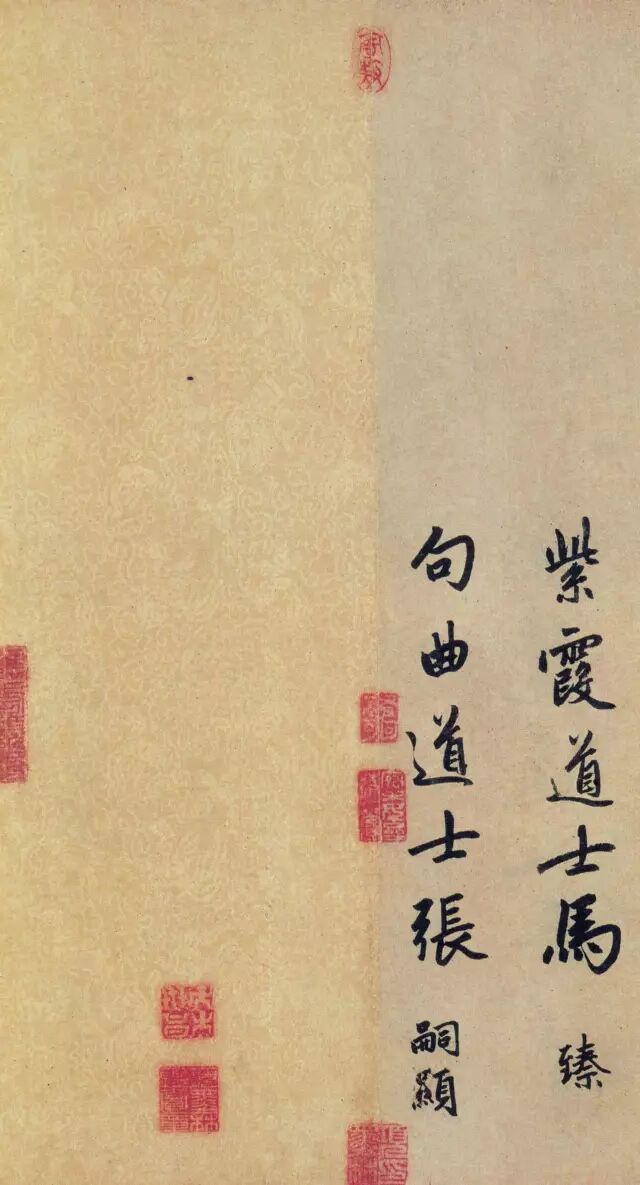 紫霞道士馬 臻
句曲道士張 嗣顯